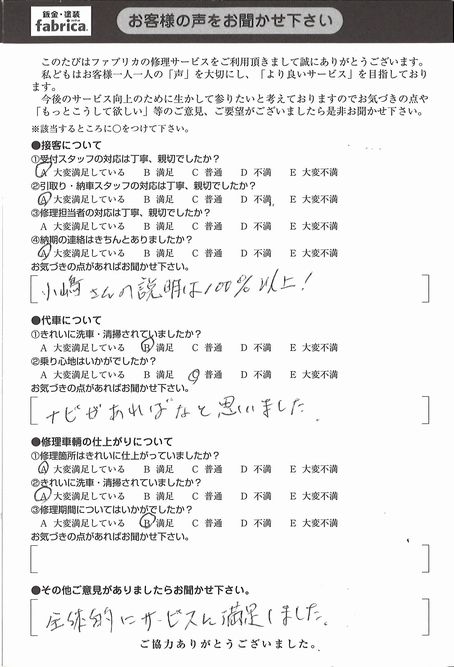 鈑金・塗装
fabrica.
お客様の声をお聞かせ下さい
このたびはファブリカの修理サービスをご利用頂きまして誠にありがとうございます。
私どもはお客様一人一人の「声」を大切にし、「より良いサービス」を目指しており
ます。
今後のサービス向上のために生かして参りたいと考えておりますのでお気づきの点や
「もっとこうして欲しい」等のご意見、ご要望がございましたら是非お聞かせ下さい。
※該当するところに○をつけて下さい。
●接客について
①受付スタッフの対応は丁寧、親切でしたか？
A 大変満足している B 満足 C 普通 D 不満 E 大変不満
②引取り・納車スタッフの対応は丁寧、親切でしたか？
A 大変満足している B 満足 C 普通 D 不満 E 大変不満
③修理担当者の対応は丁寧、親切でしたか？
A 大変満足している B 満足 C 普通 D 不満 E 大変不満
④納期の連絡はきちんとありましたか？
A 大変満足している B 満足 C 普通 D 不満 E 大変不満
お気づきの点があればお聞かせ下さい。
小嶋さんの説明は100%以上！
●代車について
①きれいに洗車・清掃されていましたか？
A 大変満足している B 満足 C 普通 D 不満 E 大変不満
②乗り心地はいかがでしたか？
A 大変満足している B 満足 C 普通 D 不満 E 大変不満
お気づきの点があればお聞かせ下さい。
ナビがあればなと思いました。
●修理車輌の仕上がりについて
①修理箇所はきれいに仕上がっていましたか？
A 大変満足している B 満足 C 普通 D 不満 E 大変不満
②きれいに洗車・清掃されていましたか？
A 大変満足している B 満足 C 普通 D 不満 E 大変不満
③修理期間についてはいかがでしたか？
A 大変満足している B 満足 C 普通 D 不満 E 大変不満
お気づきの点があればお聞かせ下さい。
●その他ご意見がありましたらお聞かせ下さい。
全体的にサービスに満足しました。
ご協力ありがとうございました。